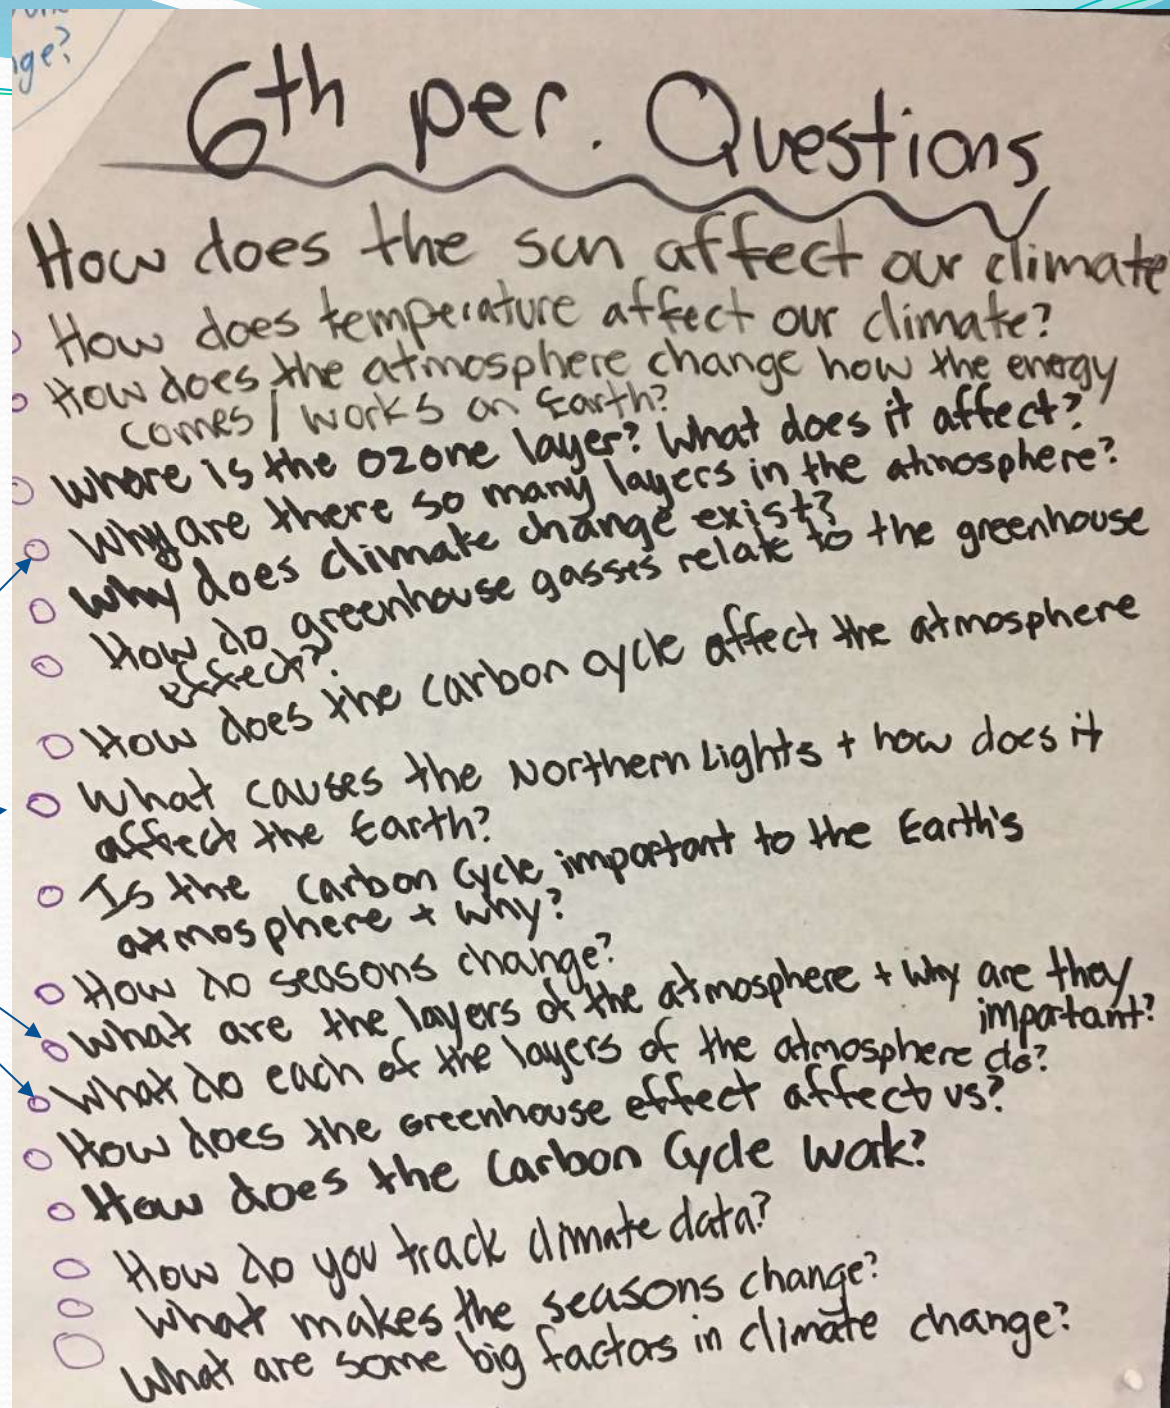 ge?
6th per. Questions
How does the sun affect our climate
How does temperature affect our climate?
How does the atmosphere change how the energy
comes / works on Earth?
Where is the ozone layer? What does it affect?
Why are there so many layers in the atmosphere?
Why does climate change exist?
How do greenhouse gasses relate to the greenhouse
effect?
How does the carbon cycle affect the atmosphere
What causes the Northern Lights + how does it
affect the Earth?
Is the Carbon Cycle important to the Earth's
atmosphere + why?
How do seasons change?
What are the layers of the atmosphere + why are they
important?
What do each of the layers of the atmosphere do?
How does the Greenhouse effect affect us?
How does the Carbon Cycle work?
How do you track climate data?
What makes the seasons change?
What are some big factors in climate change?